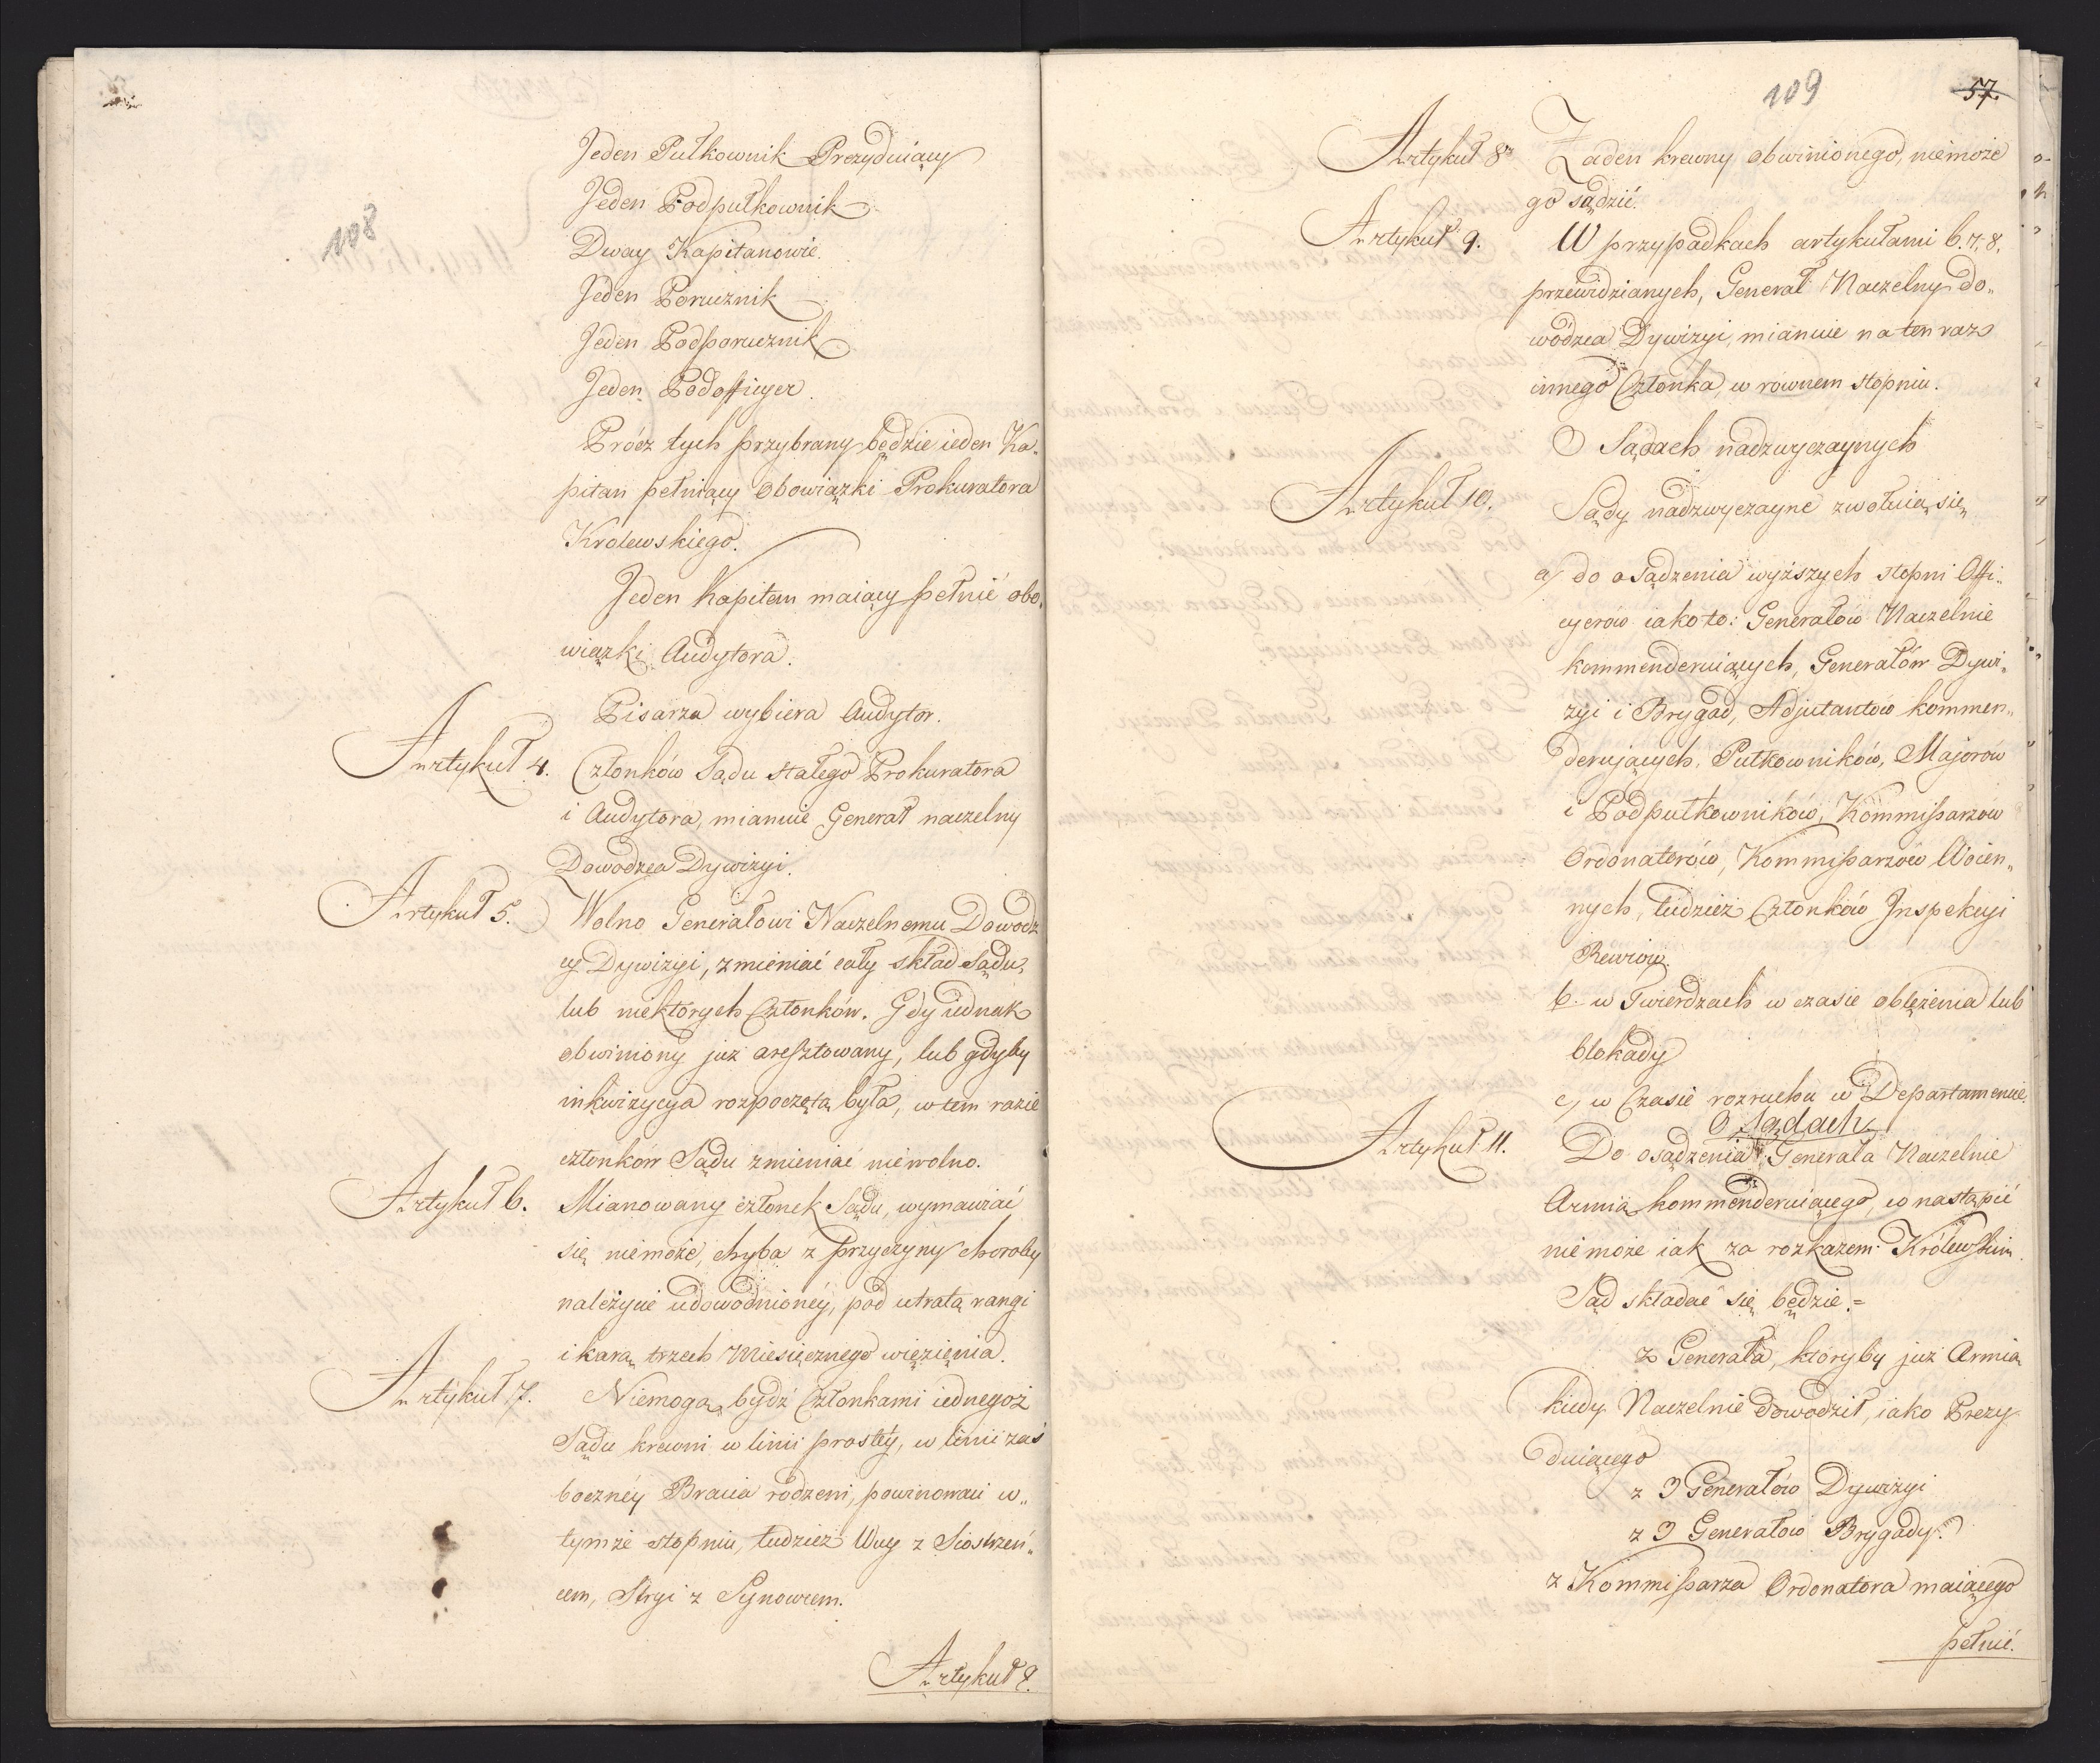 108
Jeden Pułkownik Prezyduiący
Jeden Podpułkownik
Dway Kapitanowie.
Jeden Porucznik
Jeden Podporucznik
Jeden Podofficyer.
Prócz tych przybrany będzie ieden Ka-
pitan pełniący Obowiązki Prokuratora
Królewskiego.
Jeden Kapitan maiący pełnić obo-
wiązki Audytora.
Pisarza wybiera Audytor.
Artykuł 4. Członków Sądu stałego Prokuratora
i Audytora, mianuie Generał naczelny
Dowodzca Dywizyi.
Artykuł 5. Wolno Generałowi Naczelnemu Dowodz
cy Dywizyi, zmieniać cały skład Sądu,
lub niektorych Członków. Gdy iednak
obwiniony już aresztowany, lub gdyby
inkwizycya rozpoczętą była, w tem razie
członków Sądu zmieniać niewolno.
Artykuł 6. Mianowany członek Sądu, wymawiać
się niemoże, chyba z przyczyny choroby
należycie udowodnionéy, pod utratą rangi
i karą trzech Miesięcznego więzięnia.
Artykuł 7. Niemogą bydź Członkami iednegoż
Sądu krewni w linii prostéy, w linii zaś
bocznéy Bracia rodzeni, powinowaci w„
tymże stopniu, tudzież Wuy z Siostrzeń„
cem, Stryi z Synowcem.
Artykuł 8.
109
57.
Artykuł 8. Żaden krewny obwinionego, niemoże
go sądzić.
Artykuł 9. W przypadkach artykułami 6. 7. 8.
przewidzianych, Generał Naczelny do„
wódzca Dywizyi, mianuie na ten raz
innego Członka, w równem stopniu.
O Sądach nadzwyczaynych
Artykuł 10. Sądy nadzwyczayne zwołuią się
a/ do osądzenia wyższych stopni Offi„
cyerów iako to: Generałów Naczelnie
kommenderuiących, Generałów Dywi„
zyi i Brygad, Adjutantów kommen„
derujących, Pułkowników, Majorów
i Podpułkowników, Kommissarzów
Ordonaterów, Kommissarzów Woien„
nych, tudzież Członków Inspekcyi
Rewiów.
b. w Twierdzach w czasie oblężenia lub
blokady
c, w Czasie rozruchu w Departamencie.
O Sądach
Artykuł 11. Do osądzenia Generała Naczelnie
Armią kommenderuiącego, co nastąpić
niemoże iak za rozkazem Królewskim
Sąd składać się będzie.=
z Generała, któryby już Armią
kiedy Naczelnie dowodził, iako Prezy
duiącego
z 3 Generałów Dywizyi
z 3 Generałów Brygady.
z Kommissarza Ordonatora maiącego
pełnić.